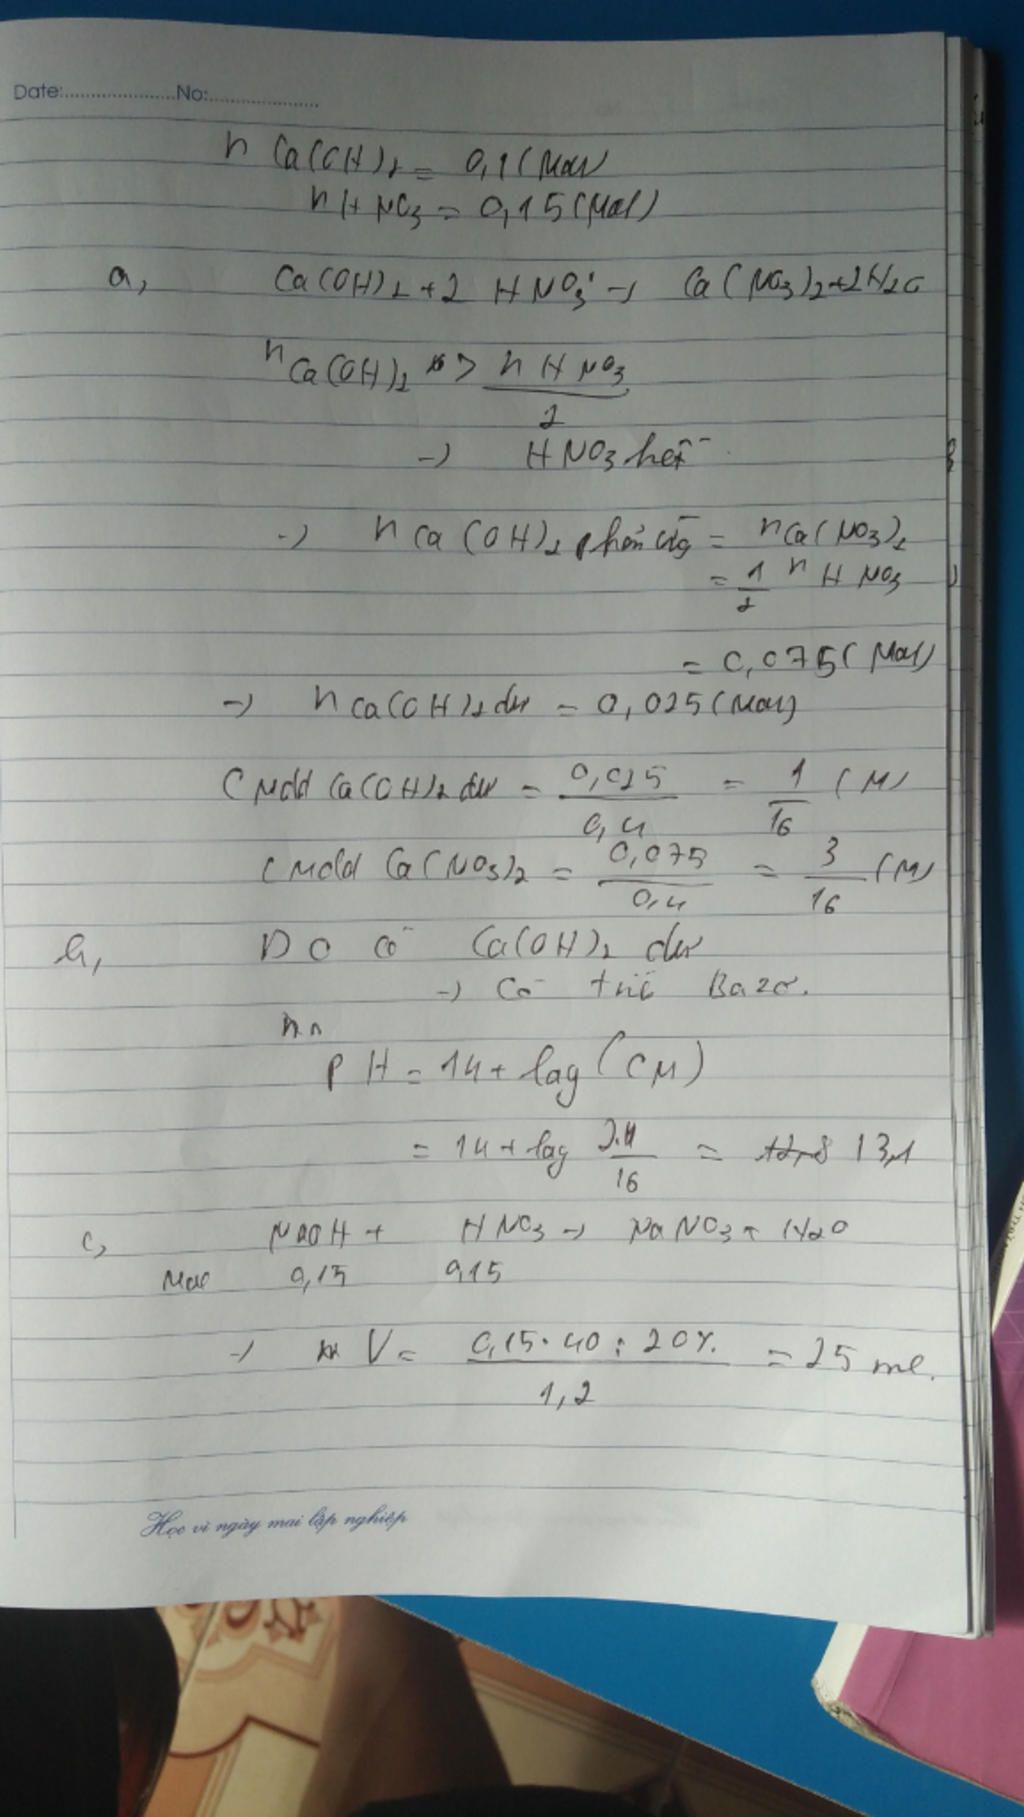 Date:.....................No:.....................
n Ca(OH)2 = 0,1 (Mol)
n HNO3 = 0,15 (Mol)
a, Ca(OH)2 + 2 HNO3 → Ca(NO3)2 + 2H2O
n Ca(OH)2 > n HNO3
2
→ HNO3 hết
→ n Ca(OH)2 phản ứng = n Ca(NO3)2
= 1/2 n HNO3
= 0,075 (Mol)
→ n Ca(OH)2 dư = 0,025 (Mol)
CMdd Ca(OH)2 dư = 0,025/0,4 = 1/16 (M)
CMdd Ca(NO3)2 = 0,075/0,4 = 3/16 (M)
b, Do có Ca(OH)2 dư
→ Có Bazơ.
PH = 14 + log (CM)
= 14 + log /16 = 13,1
c, NaOH + HNO3 → NaNO3 + H2O
Mol 0,15 0,15
→ V = 0,15.40:20%/1,2 = 25 ml.
Học vì ngày mai lập nghiệp